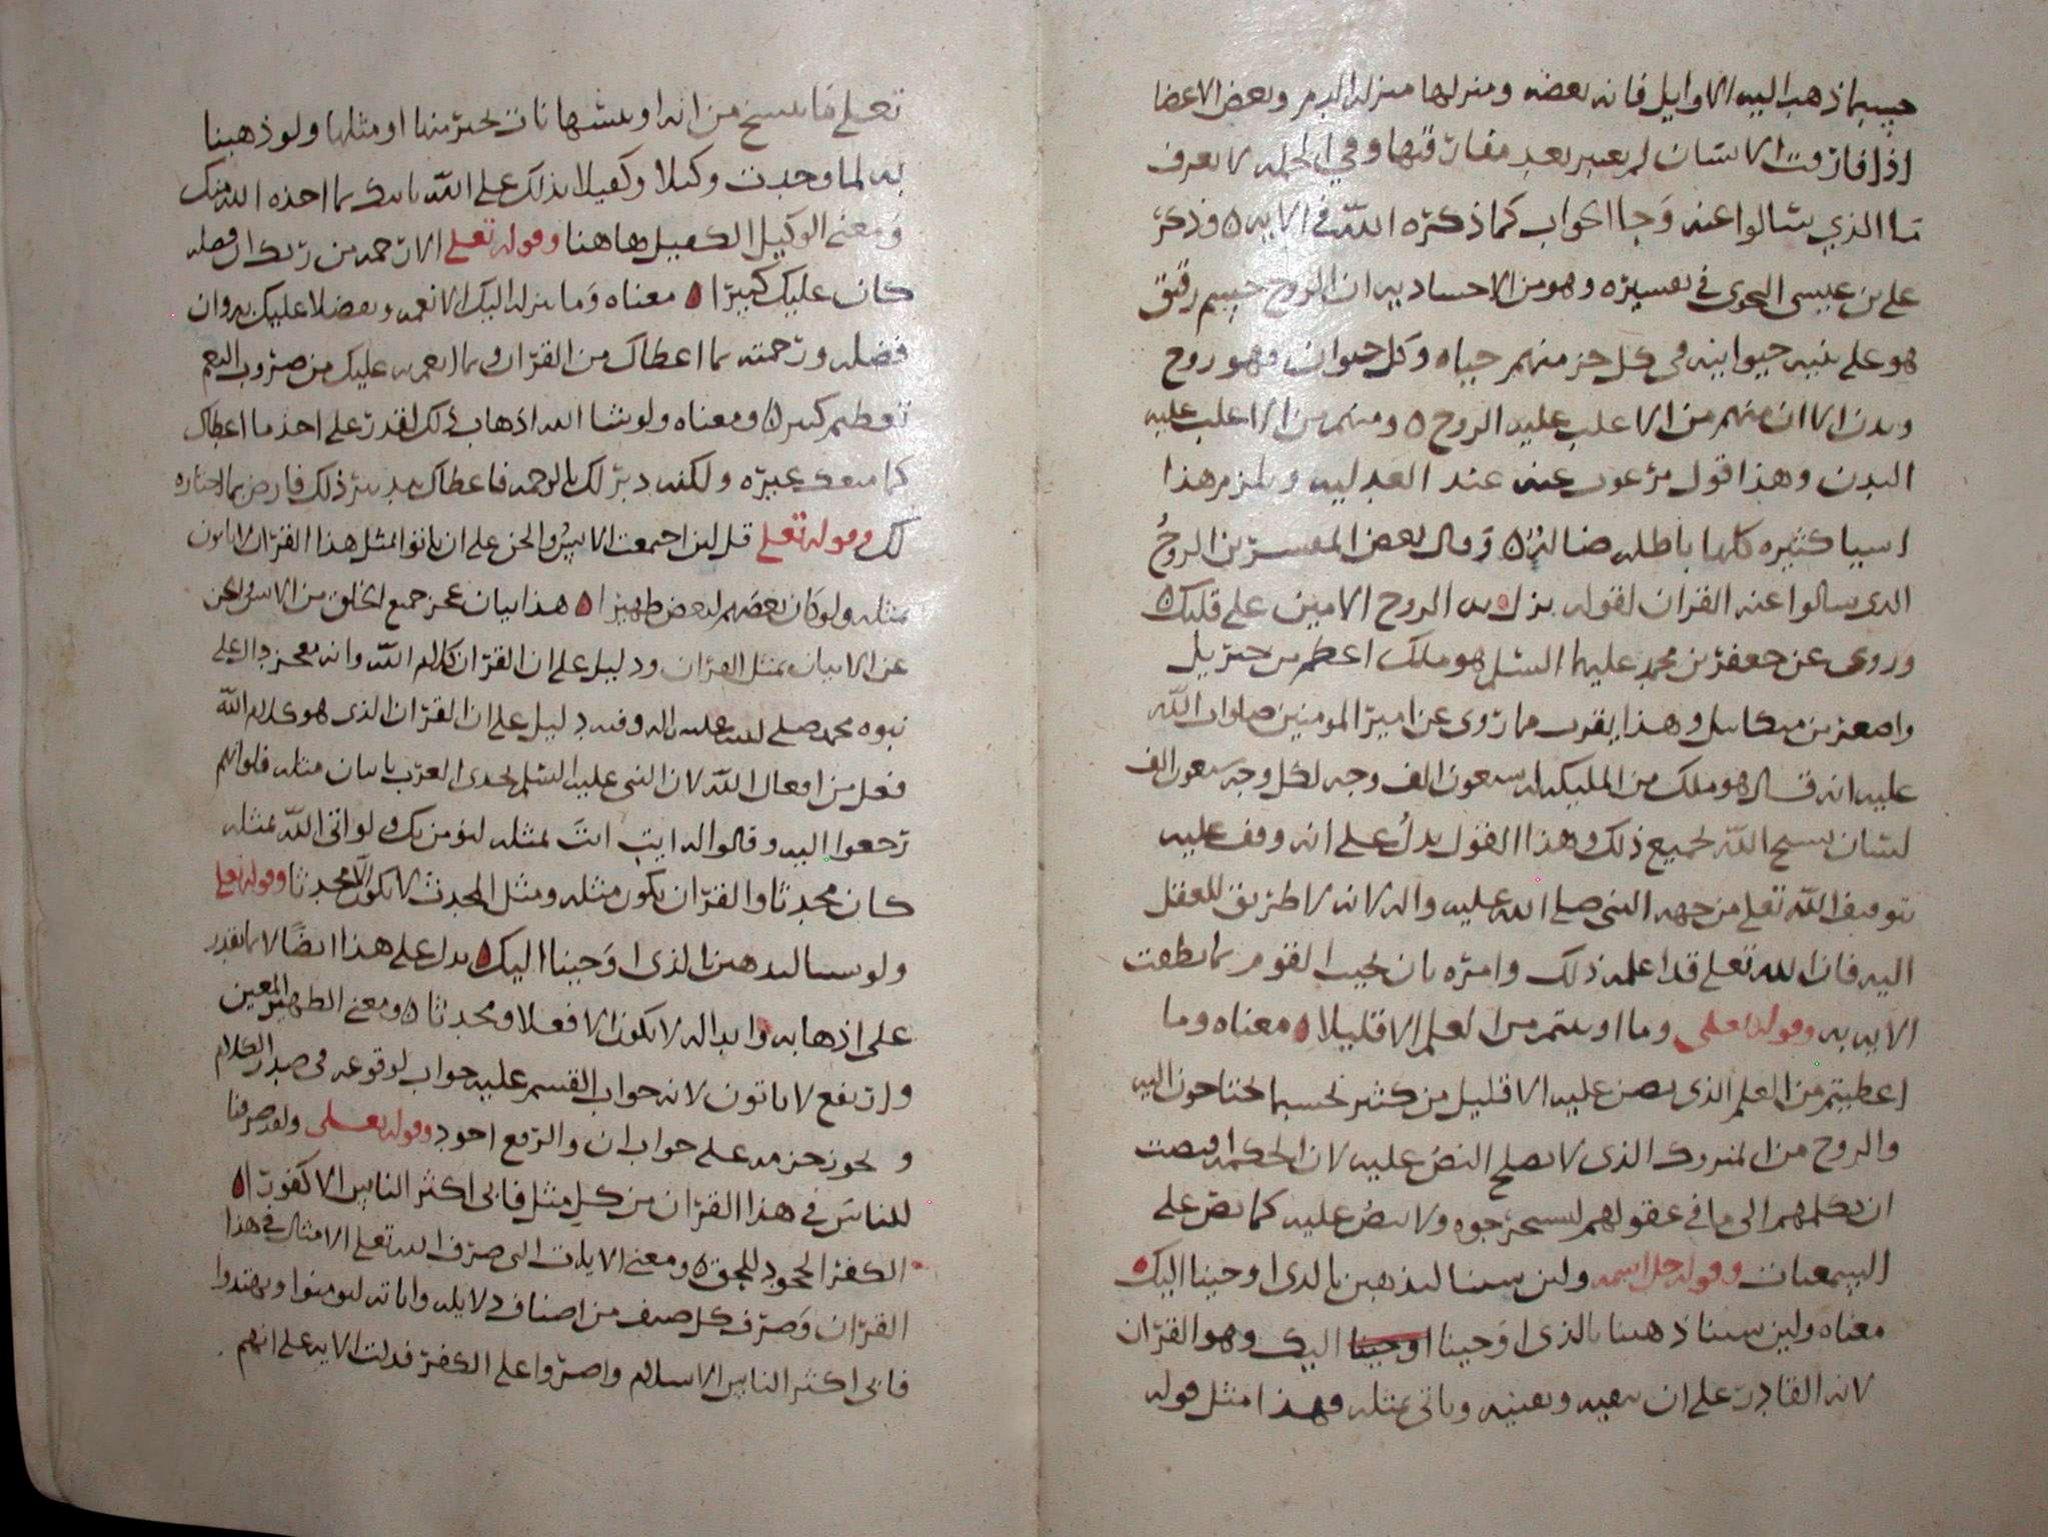 حسبما ذهب اليه الاوايل فانه بعضه ومنزلها منزله الدم وبعض الاعضا
اذا فارقت الانسان لم يعبر بعد مفارقتها وفي الجمله لا نعرف
ما الذي سالوا عنه وجا الجواب كما ذكره الله في الايه ه وذكر
علي بن عيسى النحوى في تفسيره وهو من الاحساديه ان الروح جسم رقيق
هو على بنيه حيوانيه فى كل جز منهم حياه وكل حيوان فهو روح
وبدن الا ان منهم من الاغلب عليه الروح ه ومنهم من الاغلب عليه
البدن وهذا قول مرغوب عنه عند العدليه ويلزم هذا
اسيا كثيره كلها باطله ضالة ه وقال بعض المفسرين الروح
الدى سالوا عنه القران لقوله نزل به الروح الامين على قلبك ه
وروى عن جعفر بن محمد عليهما السلم هو ملك اعظم من جبريل
واصغر من ميكاييل وهذا يقرب مما روى عن امير المومنين صلوات الله
عليه انه قال هو ملك من المليكه له سبعون الف وجه لكل وجه سبعون الف
لسان يسبح الله لجميع ذلك وهذا القول يدل على انه وقف عليه
بتوقيف الله تعلى من جهه النبي صلى الله عليه واله لانه لا طريق للعقل
اليه فان الله تعلى قد اعلمه ذلك وامره بان يجيب القوم بما نطقت
الايه به وقوله تعلى وما اوتيتم من العلم الا قليلا ه معناه وما
اعطيتم من العلم الذى نص عليه الا قليل من كثير بحسبما تحتاجون اليه
والروح من المتروك الذى لا يصلح النص عليه لان الحكمه اقتضت
ان نكلهم الى ما في عقولهم ليستخرجوه ولا ينص عليه كما نص على
السمعيات وقوله جل اسمه ولين سينا لنذهبن بالدى اوحينا اليك ه
معناه ولين سينا ذهبنا بالذى اوحينا اوحينا اليك وهو القران
لانه القادر على ان يعيه ويفنيه وياتي بمثله فهذا مثل قوله
تعلى ما ننسخ من ايه او ننسها نات بخير منها او مثلها ولو ذهبنا
به لما وجدت وكيلا وكفيلا بذلك على الله ياتيك بما اخذه الله منك
ومعنى الوكيل الكفيل هاهنا وقوله تعلى الا رحمه من ربك ان فضله
كان عليك كبيرا ه معناه وما نزله اليك الا نعمه وتفضلا عليك به وان
فضله ورحمته بما اعطاك من القران وبما انعم به عليك من ضروب النعم
تعظم كبير ه ومعناه ولو شا الله اذهاب ذلك لقدر على اخذ ما اعطاك
كما منعك غيره ولكنه دبر لك بالرحمه فاعطاك ذلك فارض بما اختاره
لك وقوله تعلى قل لين اجتمعت الانس والجن على ان ياتوا بمثل هذا القران لا ياتون
بمثله ولو كان بعضهم لبعض ظهيرا ه هذا بيان عجز جميع الخلق من الانس والجن
عن الاتيان بمثل القران ودليل على ان القران كلام الله وانه معجز دال على
نبوه محمد صلى الله عليه واله وفيه دليل على ان القران الذى هو كلام الله
فعل من افعال الله لان النبى عليه السلم تحدى العرب باتيان مثله فلو انهم
رجعوا اليه وقالوا له ايت انت بمثله لنومن بك ولو اتى الله بمثله
كان محدثا والقران يكون مثله ومثل المحدث لا يكون الا محدثا وقوله تعلى
ولو سينا لنذهبن بالذى اوحينا اليك ه يدل على هذا ايضا لان ما يقدر
على اذهابه وابداله لا يكون الا فعلا ومحدثا ه ومعنى الظهير المعين
وارتفع لا ياتون لانه جواب القسم عليه جواب لوقوعه فى صدر الكلام
ويجوز جزمه على جواب ان والرفع اجود وقوله تعلى ولقد صرفنا
للناس في هذا القران من كل مثل فابى اكثر الناس الا كفورا ه
الكفر الجحود للحق ه ومعنى الايات التى صرف الله تعلى الامثال في هذا
القران وصرف كل صنف من اصناف دلايله واياته ليومنوا ويهتدوا
فابى اكثر الناس الاسلام واصروا على الكفر فدلت الايه على انهم